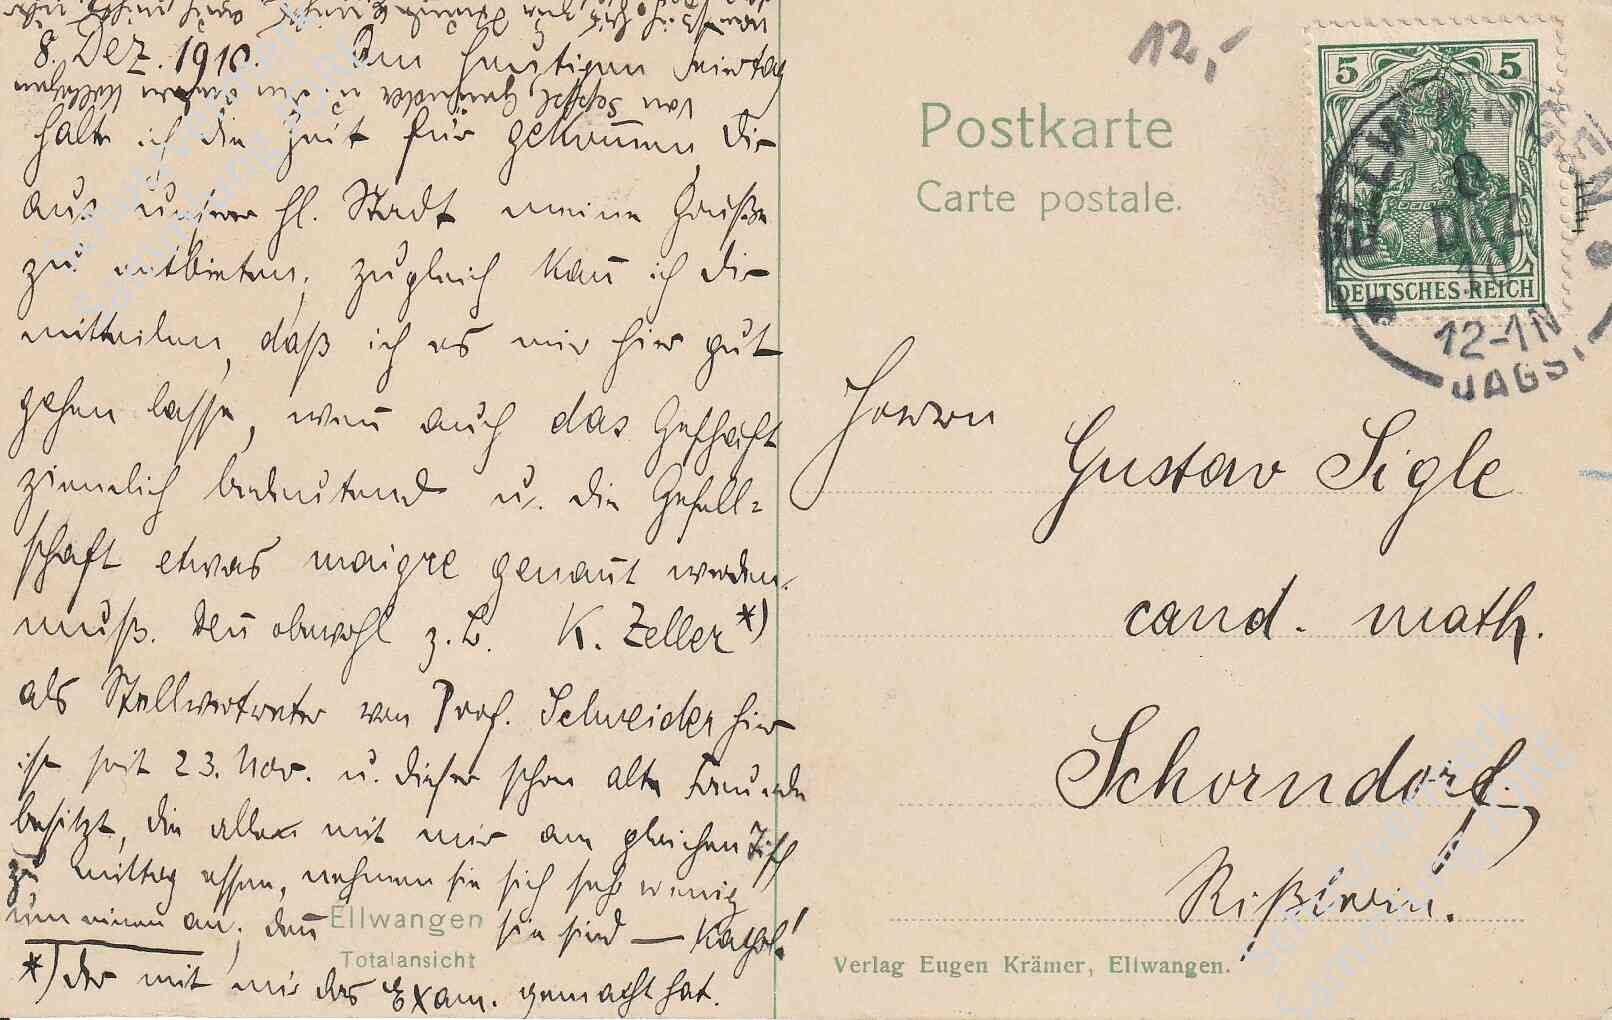 8. Dez. 1910. Am heutigen Feiertag
halte ich die Zeit für gekommen, Dir
aus unserer hl. Stadt meine Grüße
zu entbieten; zugleich kan̅ ich Dir
mitteilen, daß ich es mir hier gut
gehen lasse, wen̅ auch das Geschäft
ziemlich bedeutend u. die Gesell-
schaft etwas maigre genan̅t werden
muß. Den̅ obwohl z. B. K. Zeller *)
als Stellvertreter von Prof. Schneider hier
ist seit 23. Nov. u. dieser schon alte Freunde
besitzt, die alle mit mir am gleichen Tisch
zu mittag essen, nehmen sie sich sehr wenig
um einen an; den̅ sie sind — Kathol.!
*) der mit mir das Exam. gemacht hat.
Ellwangen
Totalansicht
12,-
Postkarte
Carte postale.
5 5
DEUTSCHES REICH
ELLWANGEN
8
DEZ
10
12-1N
JAGST
Herrn
Gustav Sigle
cand. math.
Schorndorf.
Verlag Eugen Krämer, Ellwangen.